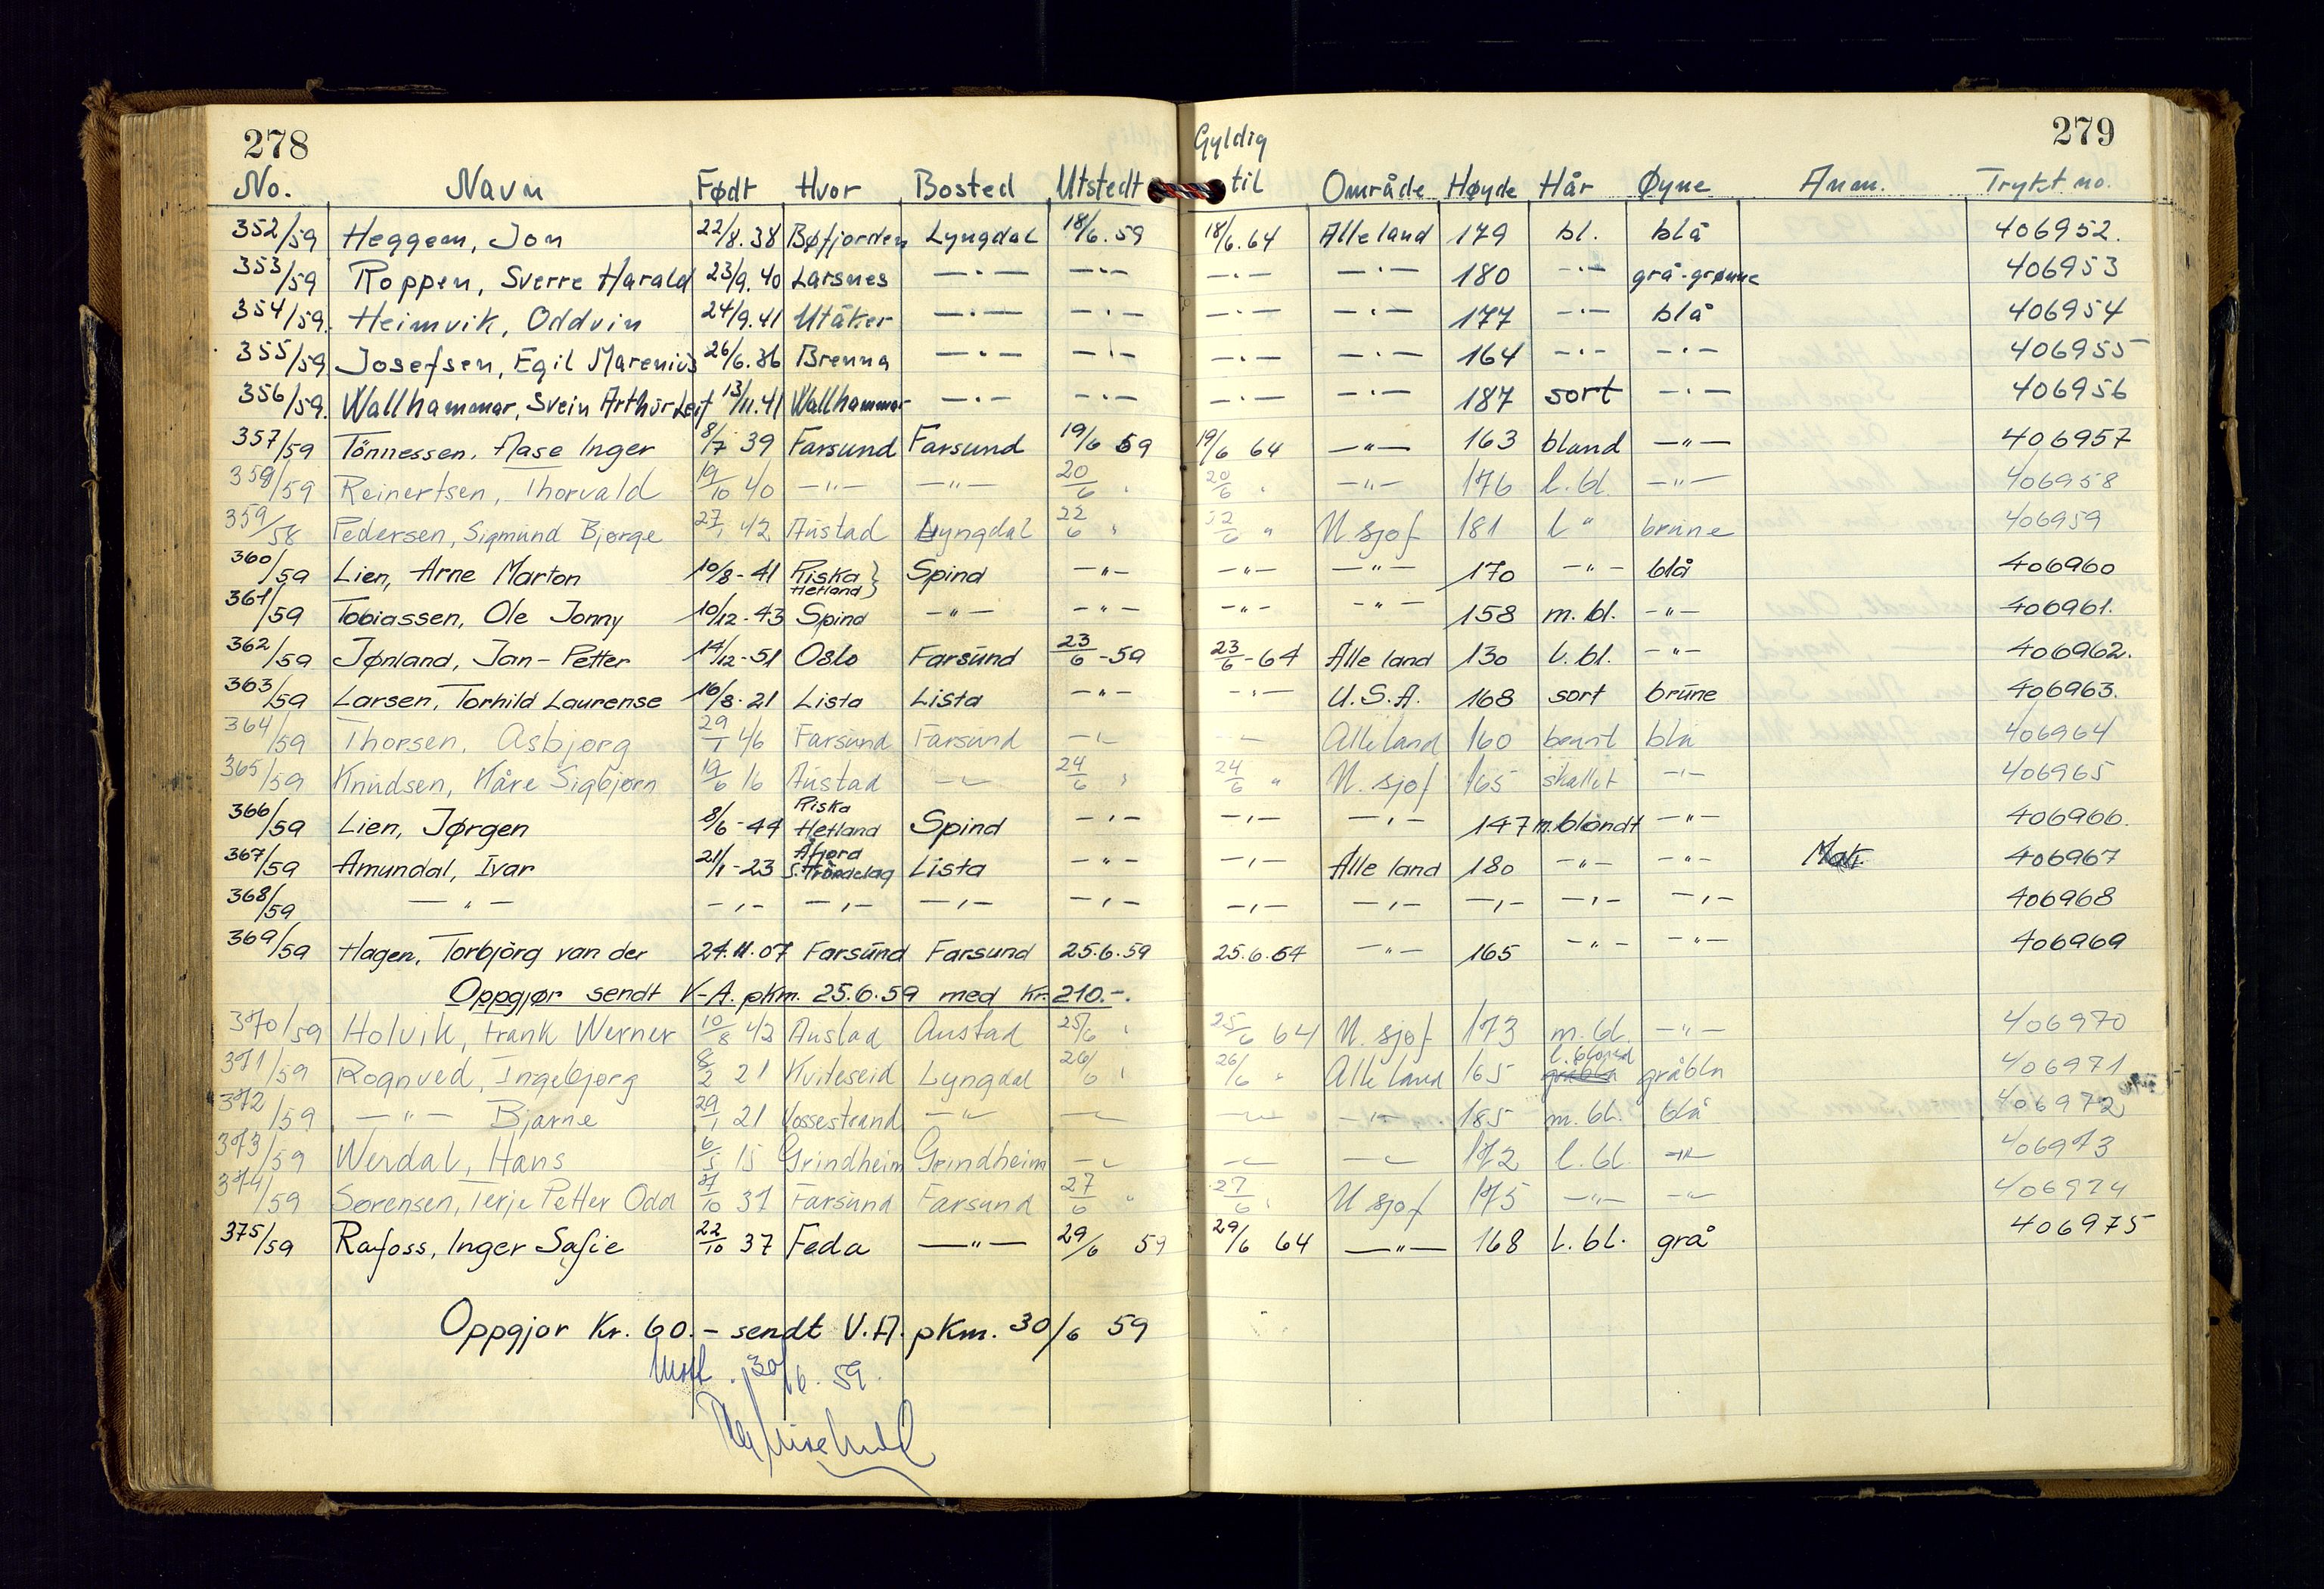 278
279
No. Navn Født Hvor Bosted Utstedt Gyldig til Område Høyde Hår Øyne Anm. Trykt no.
352/59 Heggem, Jon 22/8.38 Bøfjorden Lyngdal 18/6.59 18/6.64 Alle land 179 bl. blå 406952.
353/59 Roppen, Sverre Harald 23/9.40 Larsnes —·— —·— —·— —·— 180 —·— grå-grønne 406953
354/59. Heimvik, Oddvin 24/9.41 Utåker —·— —·— —·— —·— 177 —·— blå 406954
355/59 Josefsen, Egil Marenius 26/6.36 Brenna —·— —·— —·— —·— 164 —·— —·— 406955
356/59. Wallhammar, Svein Arthur Leif 13/11.41 Wallhammar —·— —·— —·— —·— 187 sort —·— 406956
357/59 Tönnessen, Aase Inger 8/7 39 Farsund Farsund 19/6 59 19/6 64 —"— 163 bland —"— 406957
358/59 Reinertsen, Thorvald 19/10 40 —"— —"— 20/6 " 20/6 " —"— 176 l. bl. —"— 406958
359/58 Pedersen, Sigmund Bjørge 27/1 42 Austad Lyngdal 22/6 " 22/6 " U. sjøf 181 l " brune 406959
360/59 Lien, Arne Marton 10/8-41 Riska Hetland } Spind —"— —"— —"— 170 —"— blå 406960
361/59 Tobiassen, Ole Jonny 10/12-43 Spind —"— —"— —"— —"— 158 m. bl. —"— 406961.
362/59 Jønland, Jan-Petter 14/12-51 Oslo Farsund 23/6-59 23/6-64 Alle land 130 l. bl. —"— 406962.
363/59 Larsen, Torhild Laurense 16/8-21 Lista Lista —"— —"— U.S.A. 168 sort brune 406963.
364/59 Thorsen, Asbjørg 29/1 46 Farsund Farsund —"— —"— Alle land 160 brunt blå 406964
365/59 Knudsen, Kåre Sigbjørn 19/6 16 Austad —"— 24/6 " 24/6 " U. sjøf 165 skallet —"— 406965
366/59 Lien, Jørgen 8/6-44 Riska Hetland Spind —"— —"— —"— 147 m. blondt —"— 406966.
367/59 Amundal, Ivar 21/1-23 Åfjord S. Trøndelag Lista —"— —"— Alle land 180 —"— —"— 406967
368/59 —"— —"— —"— —"— —"— —"— —"— —"— —"— —"— 406968
369/59 Hagen, Torbjörg van der 24.11.07 Farsund Farsund 25.6.59 25.6.64 —"— 165 —"— —"— 406969
Oppgjør sendt V-A. pkm. 25.6.59 med kr. 210.-.
370/59 Holvik, Frank Werner 10/8 42 Austad Austad 25/6 " 25/6 64 U. sjøf 173 m. bl. —"— 406970
371/59 Rognved, Ingebjørg 8/2 21 Kviteseid Lyngdal 26/6 " 26/6 " Alle land 165 l. blond gråblå gråblå 406971
372/59 —"— Bjarne 29/1 21 Vossestrand —"— —"— —"— —"— 185 m. bl. blå 406972
373/59 Werdal, Hans 6/5 15 Grindheim Grindheim —"— —"— —"— 172 l. bl. —"— 406973
374/59 Sørensen, Terje Petter Odd 7/10 37 Farsund Farsund 27/6 " 27/6 " U sjøf 175 —"— —"— 406974
375/59 Rafoss, Inger Sofie 22/10 37 Feda —"— 29/6 59 29/6 64 —"— 168 l. bl. grå 406975
Oppgjør Kr. 60.- sendt V.A. pkm. 30/6 59
30/6. 59.